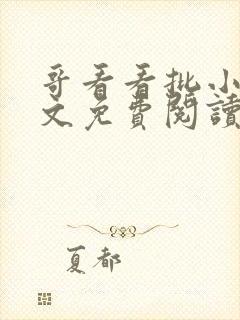 哥看看批小
文免費閱讀
夏都